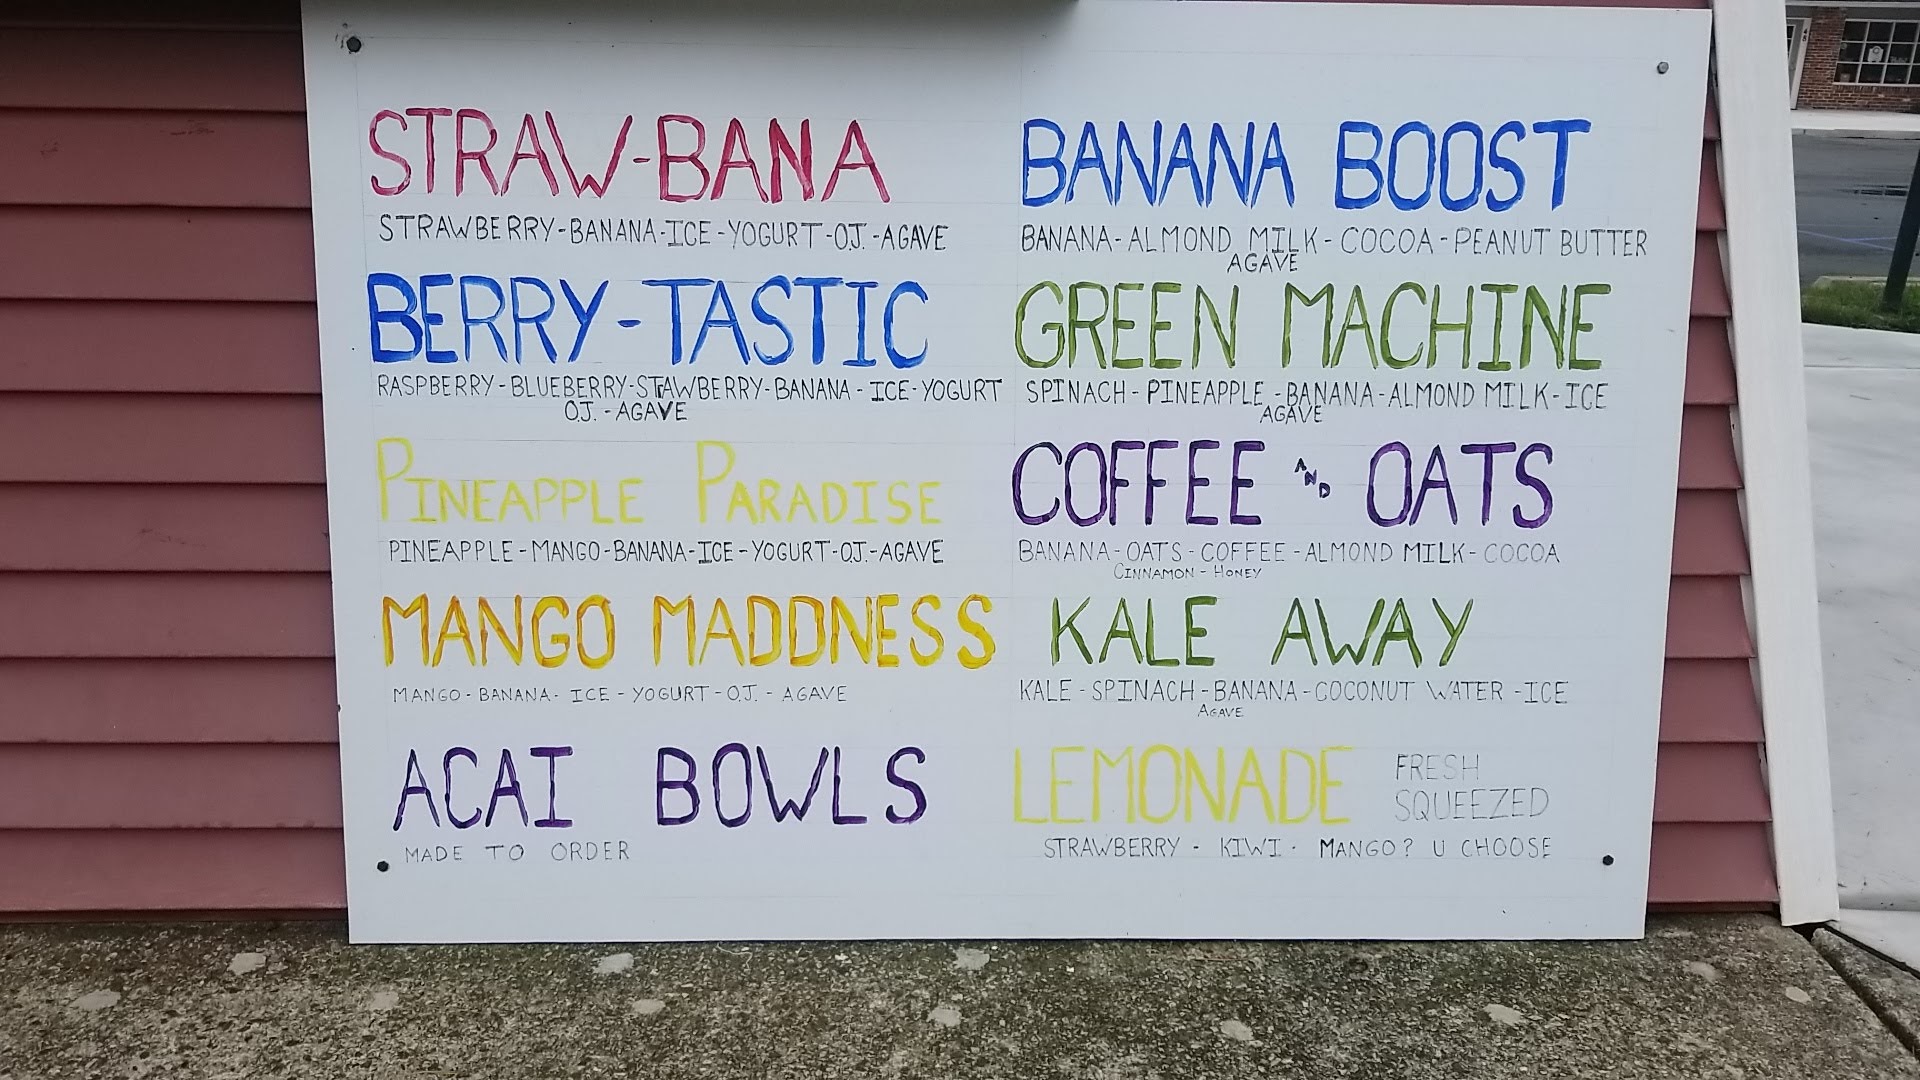 STRAW-BANA
STRAWBERRY-BANANA-ICE-YOGURT-O.J.-AGAVE
BERRY-TASTIC
RASPBERRY-BLUEBERRY-STAWBERRY-BANANA-ICE-YOGURT
O.J.-AGAVE
PINEAPPLE PARADISE
PINEAPPLE-MANGO-BANANA-ICE-YOGURT-O.J.-AGAVE
MANGO MADDNESS
MANGO-BANANA-ICE-YOGURT-O.J.-AGAVE
ACAI BOWLS
MADE TO ORDER
BANANA BOOST
BANANA-ALMOND MILK-COCOA-PEANUT BUTTER
AGAVE
GREEN MACHINE
SPINACH-PINEAPPLE-BANANA-ALMOND MILK-ICE
AGAVE
COFFEE AND OATS
BANANA-OATS-COFFEE-ALMOND MILK-COCOA
CINNAMON-HONEY
KALE AWAY
KALE-SPINACH-BANANA-COCONUT WATER-ICE
AGAVE
LEMONADE FRESH
SQUEEZED
STRAWBERRY - KIWI - MANGO? U CHOOSE